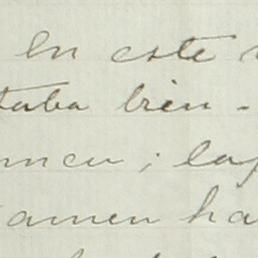 En este
taba bien -
men ; la
amen ha